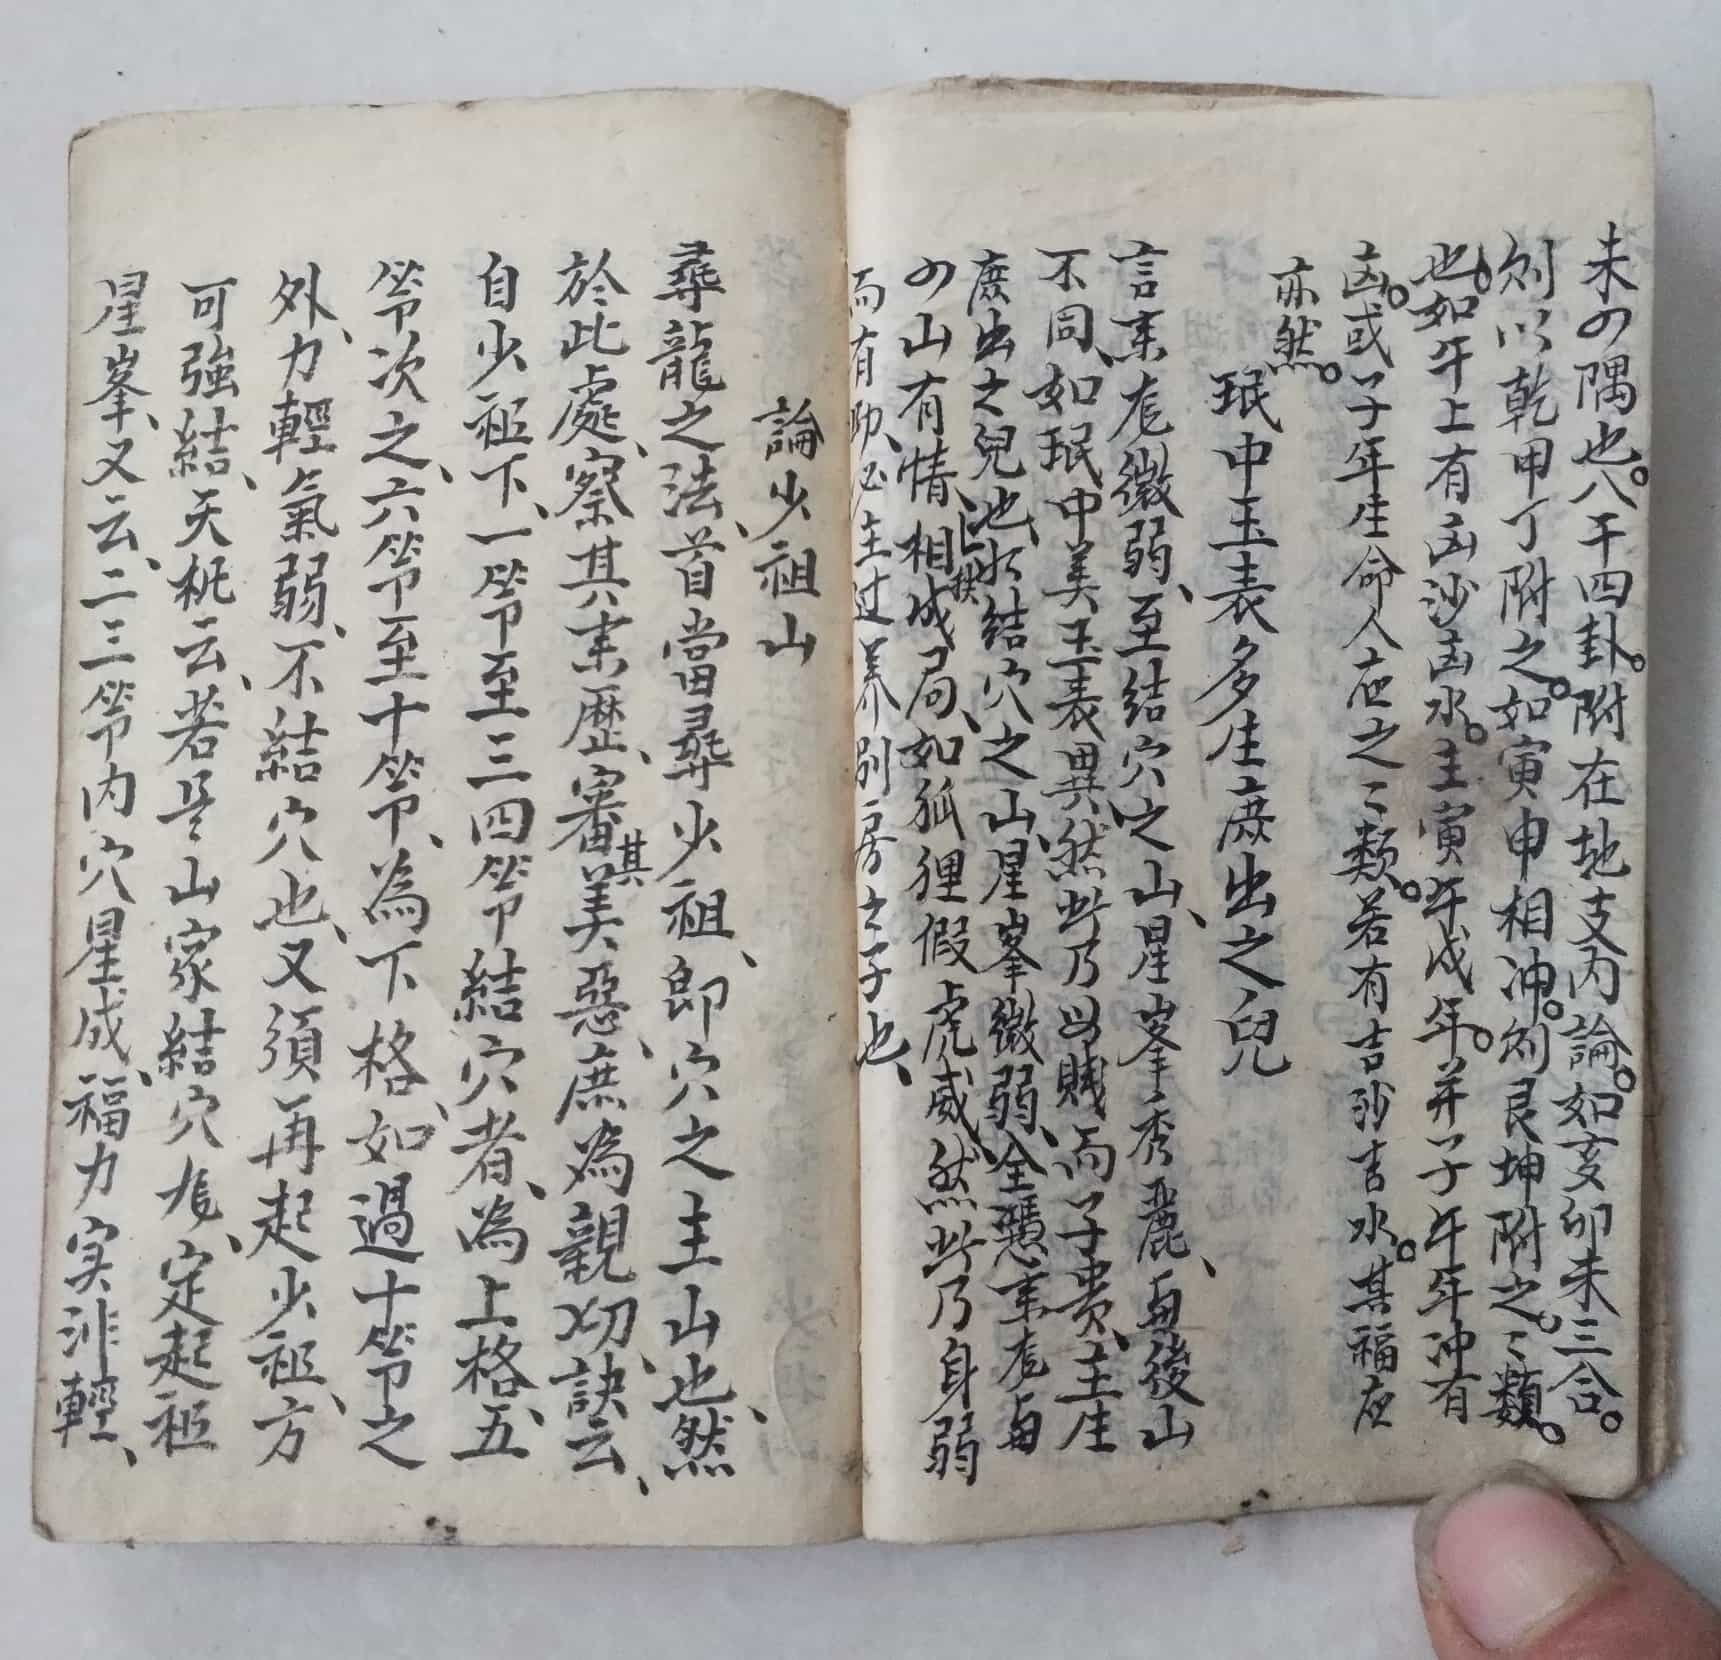 未四隅也。八干四卦。附在地支内論。如亥卯未三合。
則以乾甲丁附之。如寅申相冲。則艮坤附之。〻類。
也。如午上有凶沙凶水。主寅午戌年。并子午年冲有
凶。或子年生命人应之〻類。若有吉沙吉水。其福应
亦然。
珉中玉表多生庶出之兒
言来龙微弱、至结穴之山、星峯秀麗、與後山
不同、如珉中美玉表異、然此乃母賤而子贵、主生
庶出之兒也、如结穴之山、星峯微弱、全憑来龙與
四山有情、拱相成局、如狐狸假虎威、然此乃身弱
而有助、必主过养别房之子也、
論少祖山
尋龍之法、首當尋少祖、即穴之主山也、然
於此處、察其来歷、審其美惡、庶為親切、訣云、
自少祖下、一节至三四节結穴者、為上格、五
节次之、六节至十节、為下格、如過十节之
外、力輕氣弱、不結穴也、又須再起少祖、方
可強結、天机云、若是山家結穴龙、定起祖
星峯、又云、二三节内穴星成、福力实非輕、